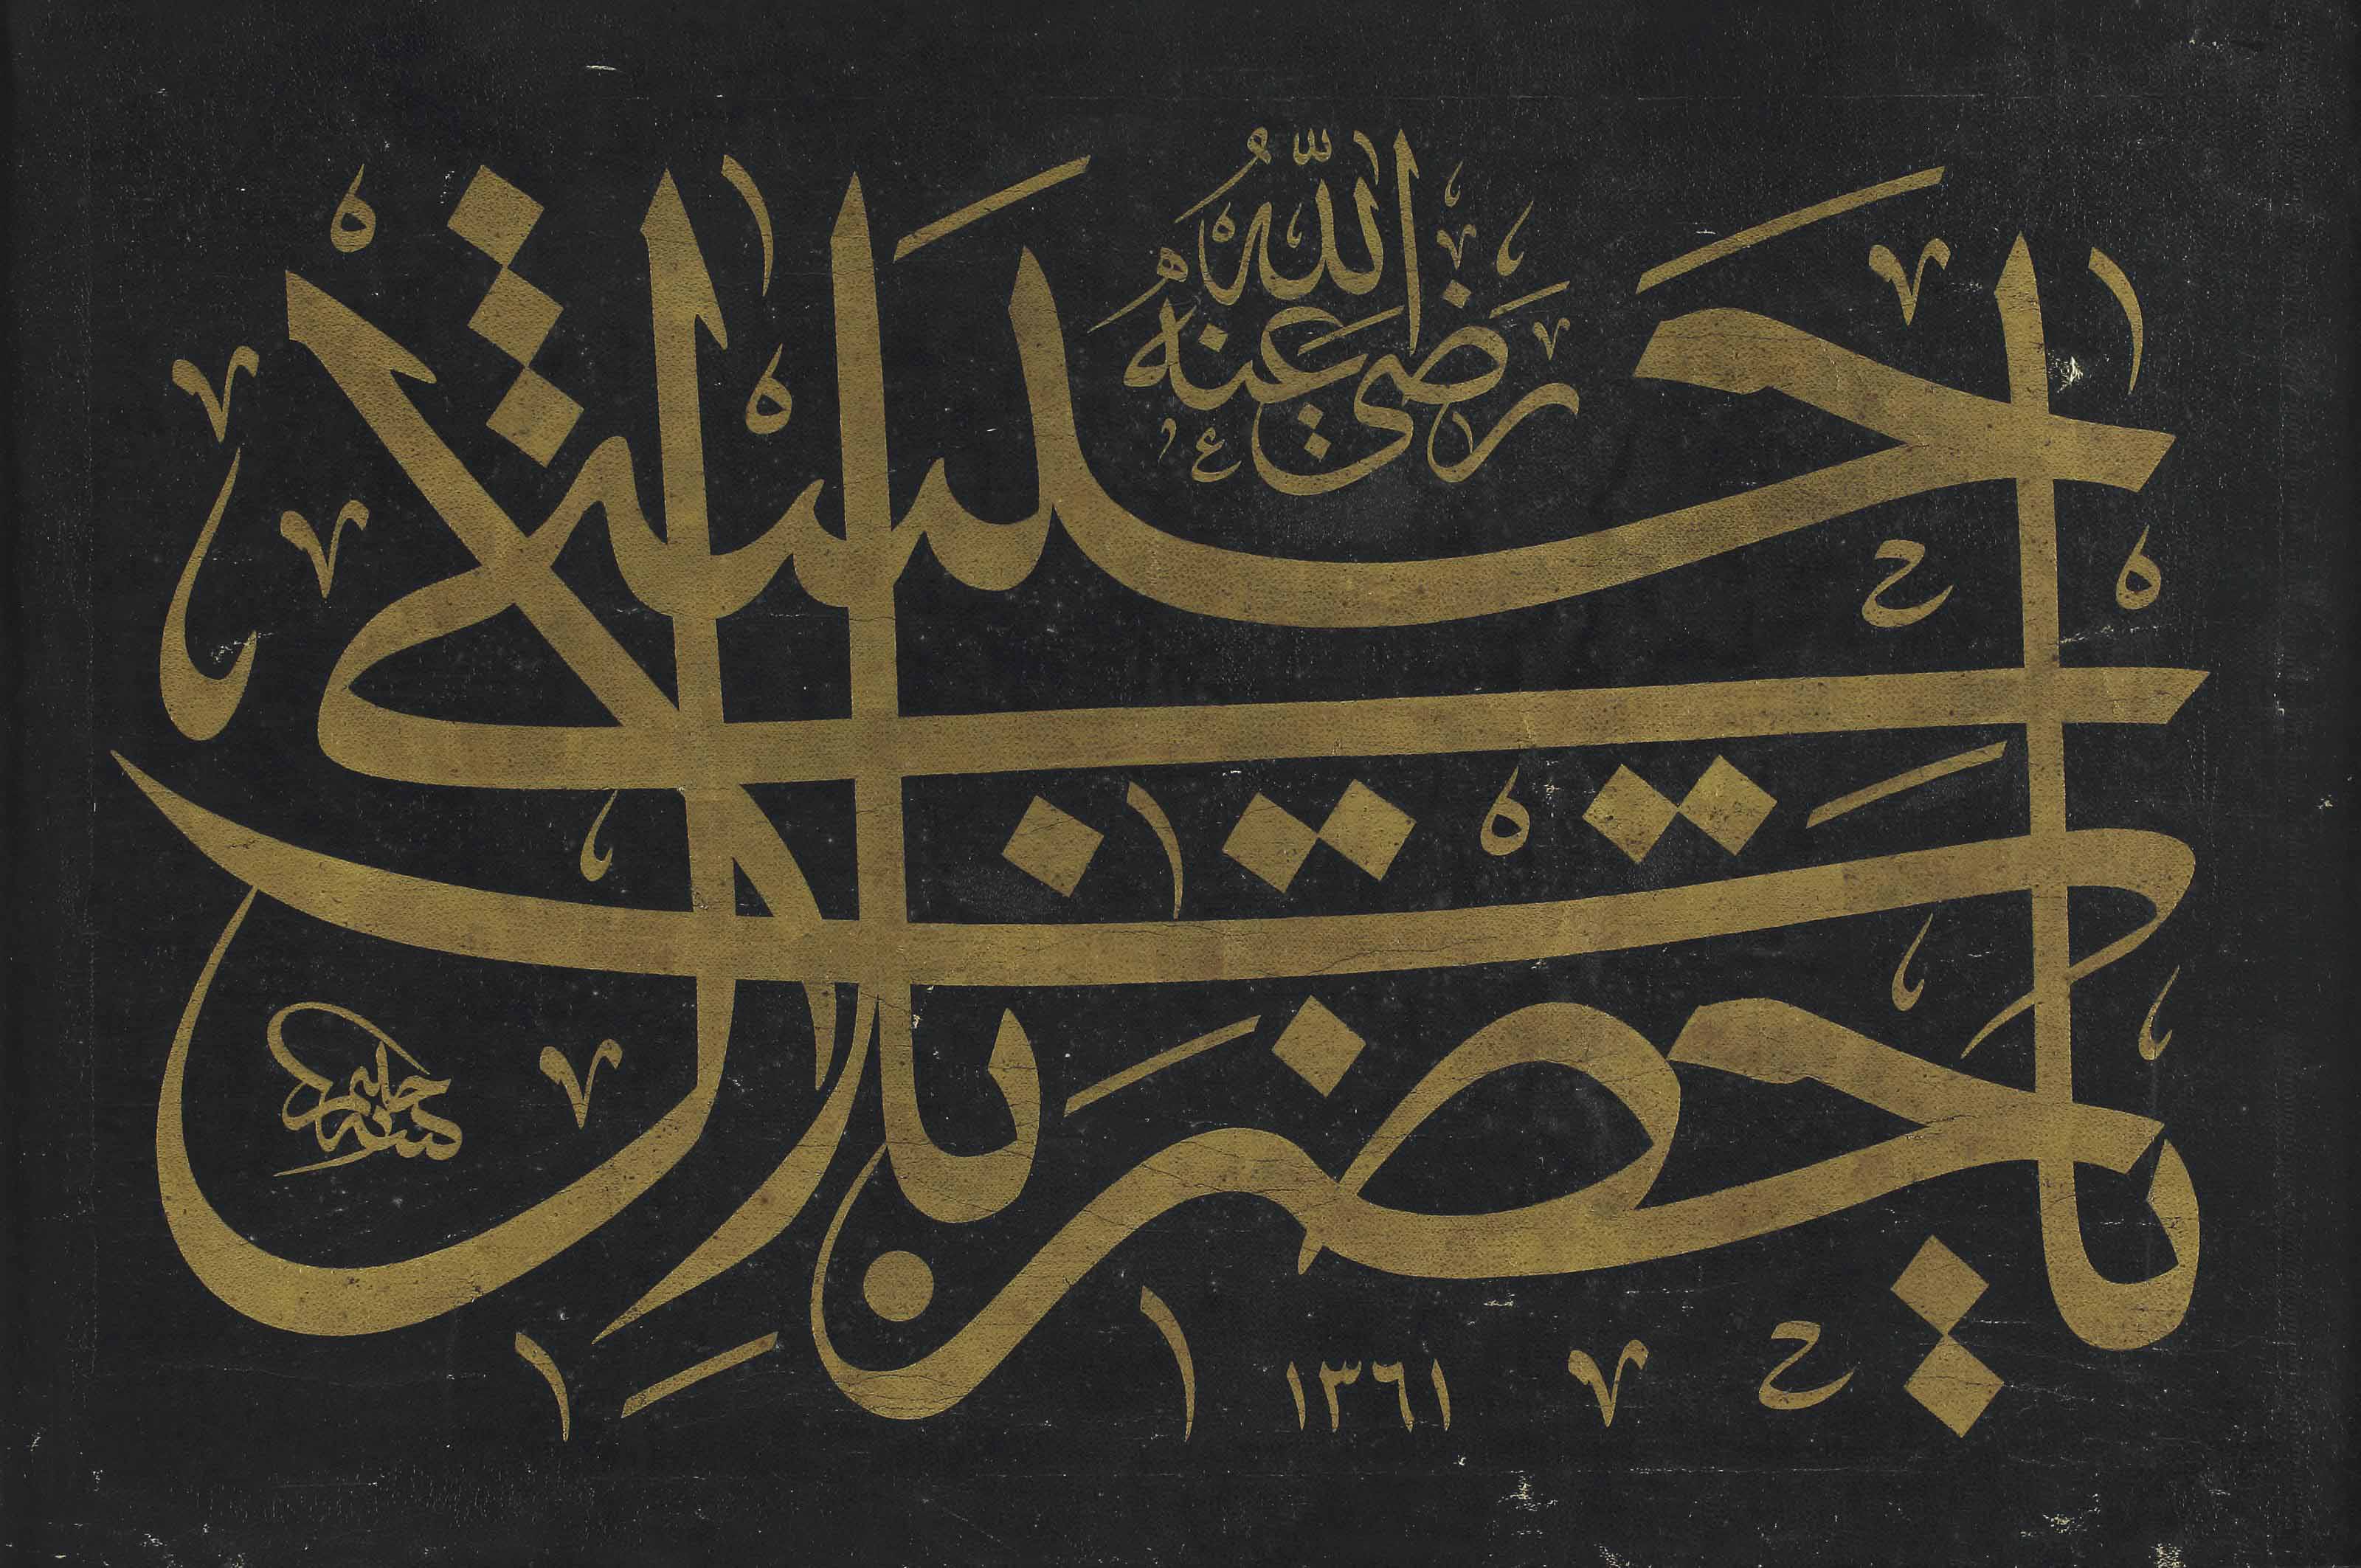 يا حضرت بلال حبشي
رضي الله عنه
حليم
١٣٦١